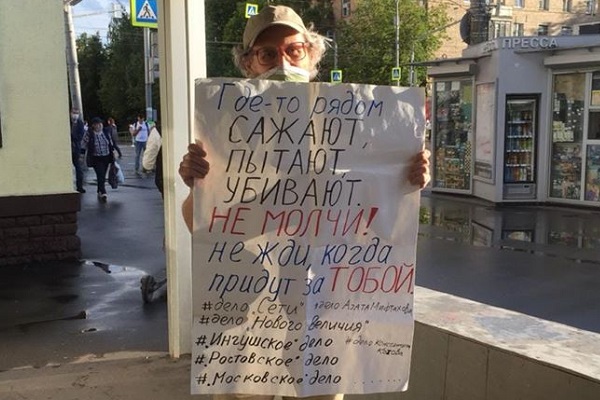 ПРЕССА
Где-то рядом
САЖАЮТ,
ПЫТАЮТ,
УБИВАЮТ.
НЕ МОЛЧИ!
не жди, когда
придут за ТОБОЙ.
#дело "Сети" #дело Азата Мифтахова
#дело "Нового величия"
#"Ингушское" дело #дело Константина
Котова
#"Ростовское" дело
#"Московское" дело .......